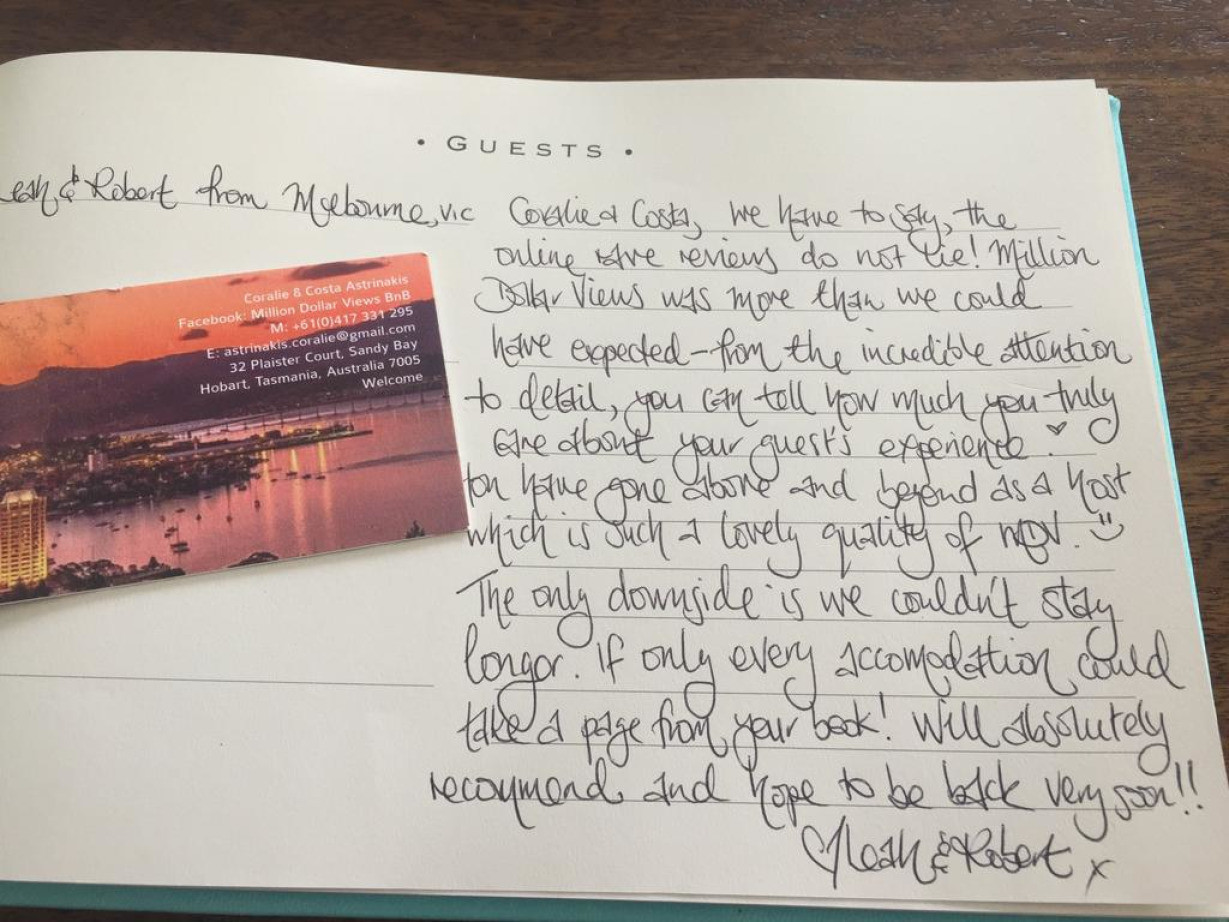 • GUESTS •
eah & Robert from Melbourne, vic
Coralie & Costa Astrinakis
Facebook: Million Dollar Views BnB
M: +61(0)417 331 295
E: astrinakis.coralie@gmail.com
32 Plaister Court, Sandy Bay
Hobart, Tasmania, Australia 7005
Welcome
Coralie & Costa, we have to say, the
online rave reviews do not lie! Million
Dollar Views was more than we could
have expected - from the incredible attention
to detail, you can tell how much you truly
care about your guest's experience. ♡
You have gone above and beyond as a host
which is such a lovely quality of
The only downside is we couldn't stay
longer. If only every accomodation could
take a page from your book! Will absolutely
recommend and hope to be back very soon!!
♡ Neah & Robert x